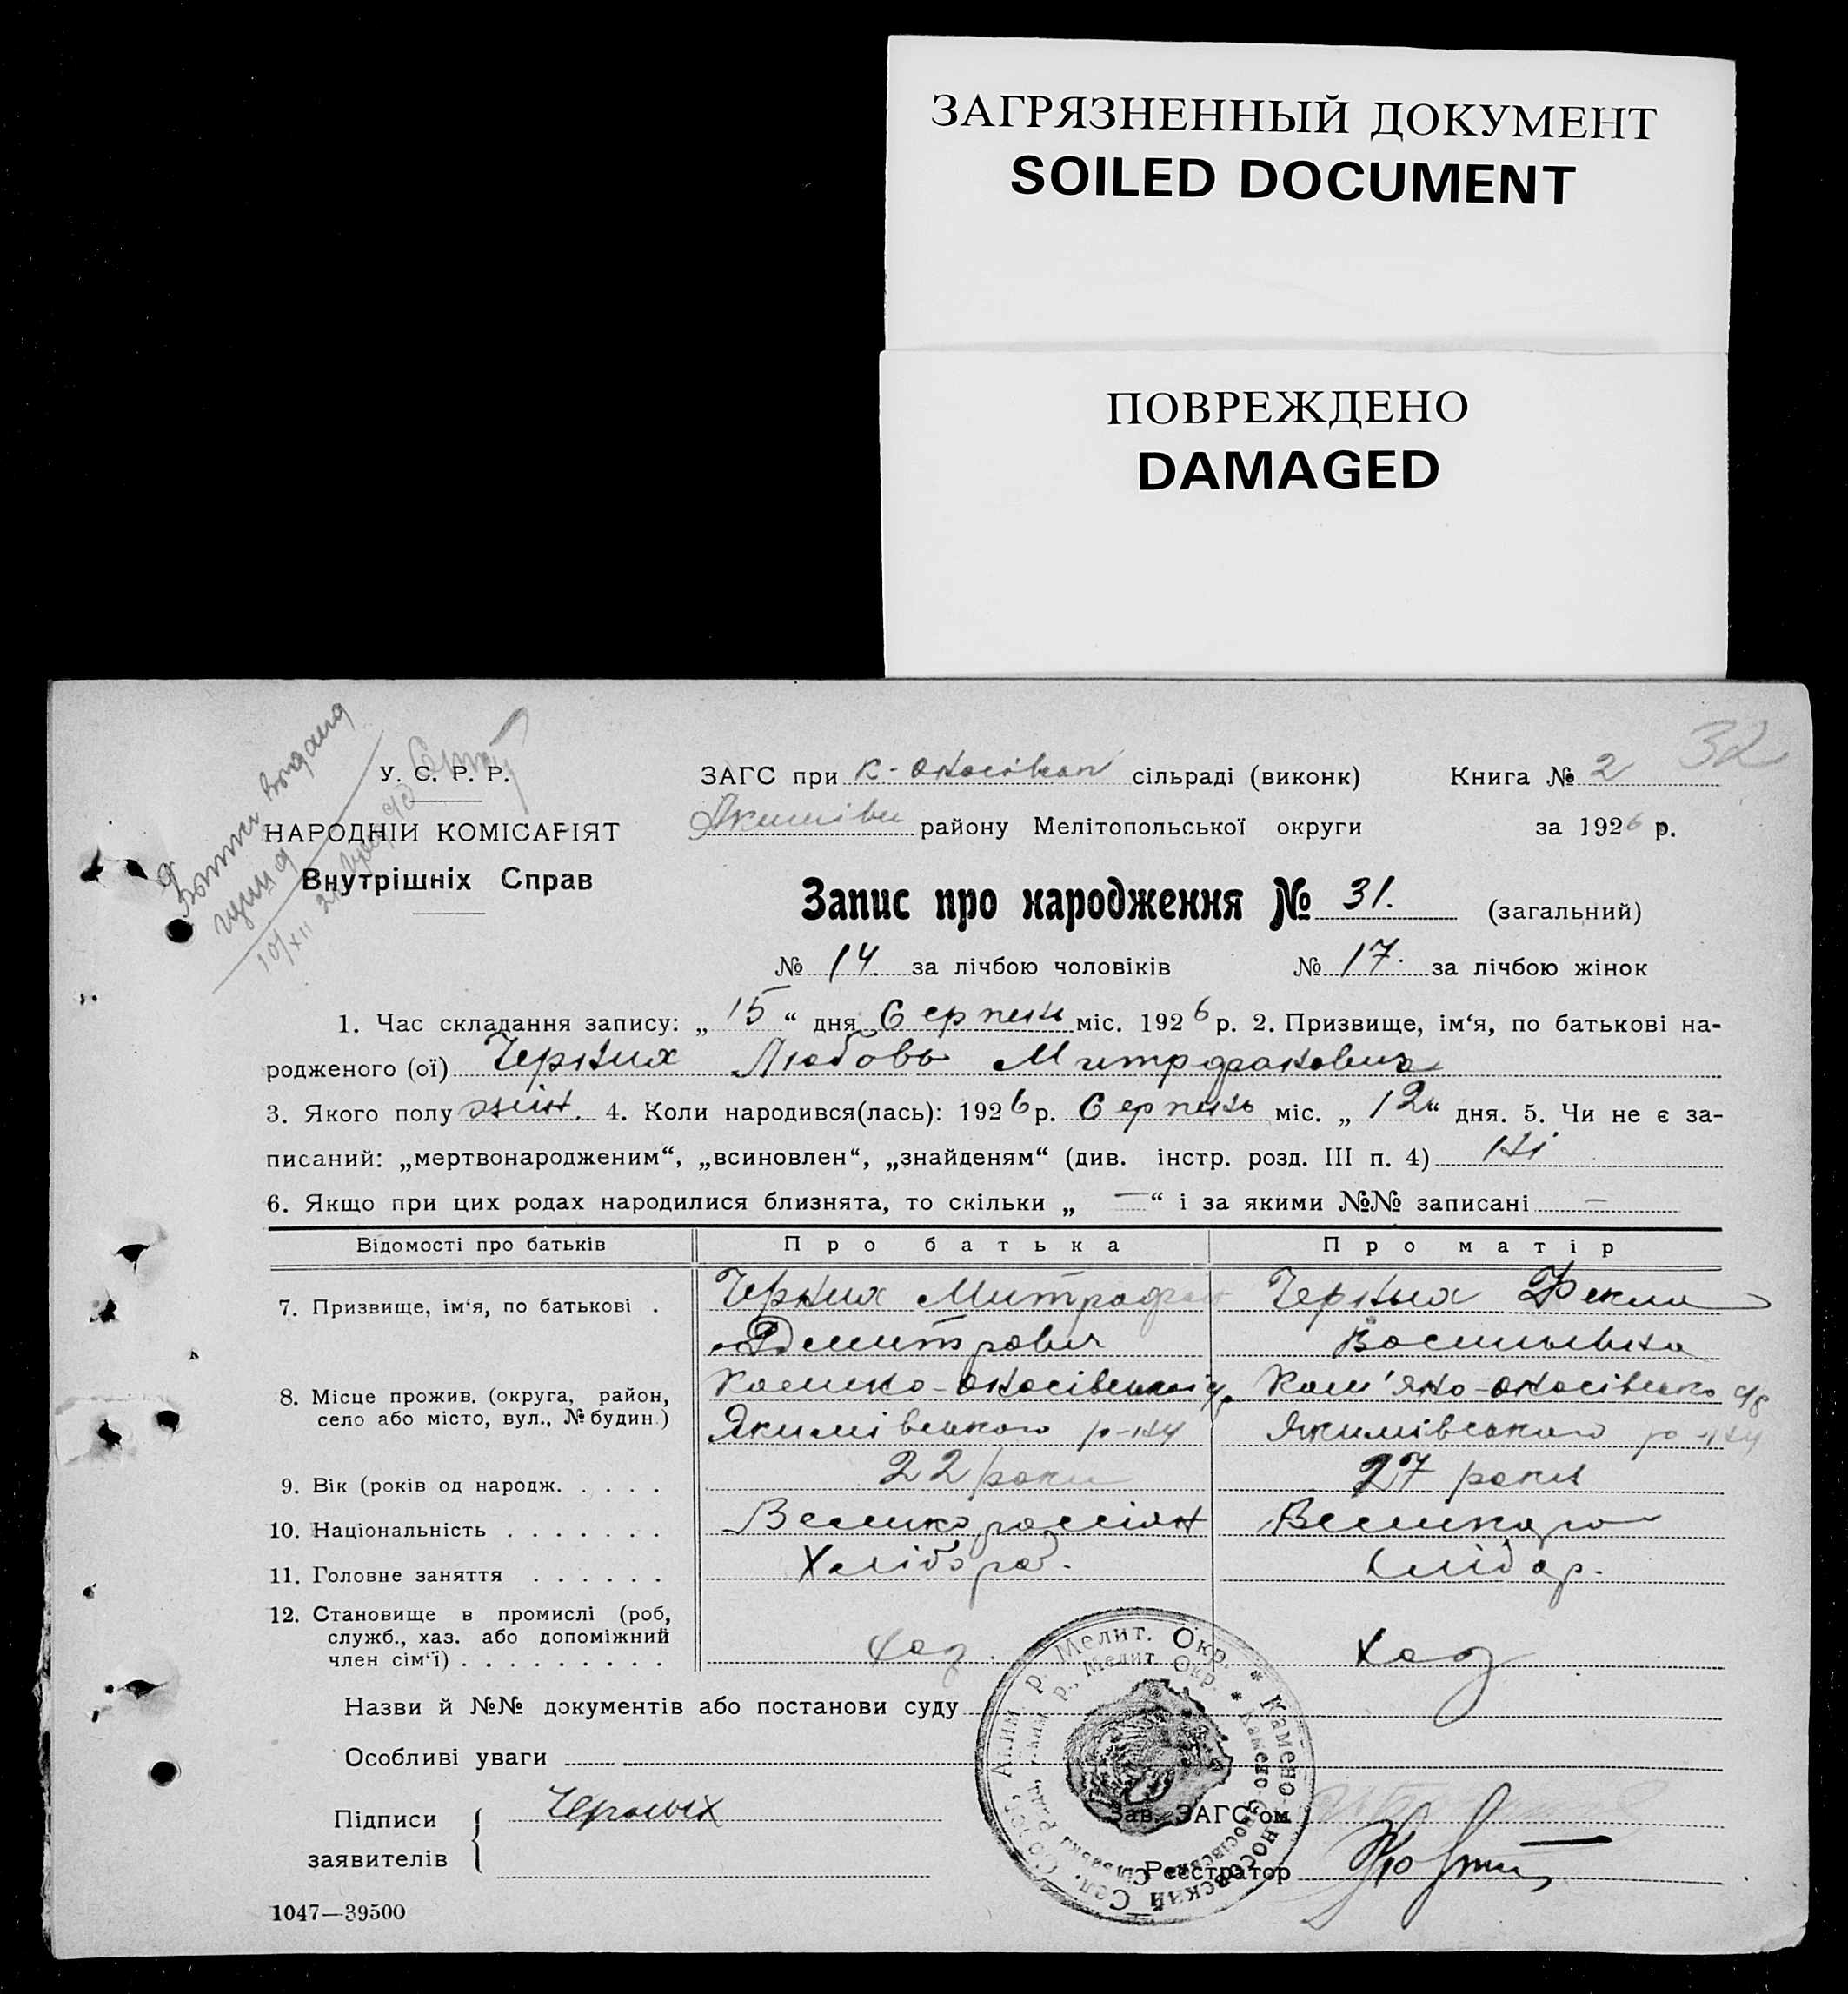 ЗАГРЯЗНЕННЫЙ ДОКУМЕНТ
SOILED DOCUMENT
ПОВРЕЖДЕНО
DAMAGED
32
У. С. Р. Р.
НАРОДНІЙ КОМІСАРІЯТ
Внутрішніх Справ
10/XII
ЗАГС при сільраді (виконк) Книга № 2
Якимівськ району Мелітопольської округи за 1926 р.
Запис про народження № 31. (загальний)
№ 14 за лічбою чоловіків № 17. за лічбою жінок
1. Час складання запису: „15“ дня Серпень міс. 1926 р. 2. Призвище, ім‘я, по батькові на-
родженого (ої) Черних Любовь
3. Якого полу жін. 4. Коли народився(лась): 1926 р. Серпень міс. „12“ дня. 5. Чи не є за-
писаний: „мертвонародженим“, „всиновлен“, „знайденям“ (див. інстр. розд. III п. 4) Ні
6. Якщо при цих родах народилися близнята, то скільки „—“ і за якими №№ записані —
Відомості про батьків Про батька Про матір
7. Призвище, ім‘я, по батькові . Черних Митрофан Черних Фекла
Дмитрович Васильевна
8. Місце прожив. (округа, район,
село або місто, вул., № будин.)
Якимівського р-ну Якимівського р-ну
9. Вік (років од народж. . . . . 22 роки 27 років
10. Національність . . . . . . . Великоросіян Великоро
11. Головне заняття . . . . . . Хлібороб. Хлібор.
12. Становище в промислі (роб,
служб., хаз. або допоміжний
член сім‘ї) . . . . . . . . . Хаз. Хаз
Назви й №№ документів або постанови суду
Особливі уваги
Підписи
заявителів
Черных
Зав. ЗАГС‘ом
Реєстратор
1047—39500